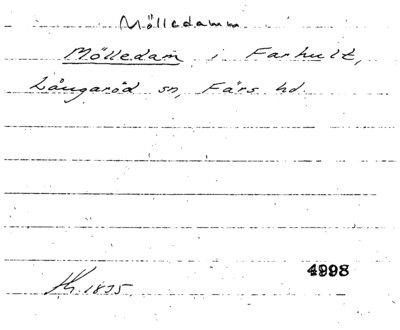 Mölledamm
Mölledam i Farhult,
Långaröd sn, Färs hd.
4998
1835